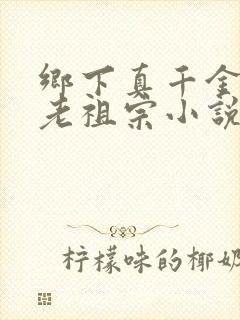 鄉下真千金
老祖宗小說
柠檬味的椰奶